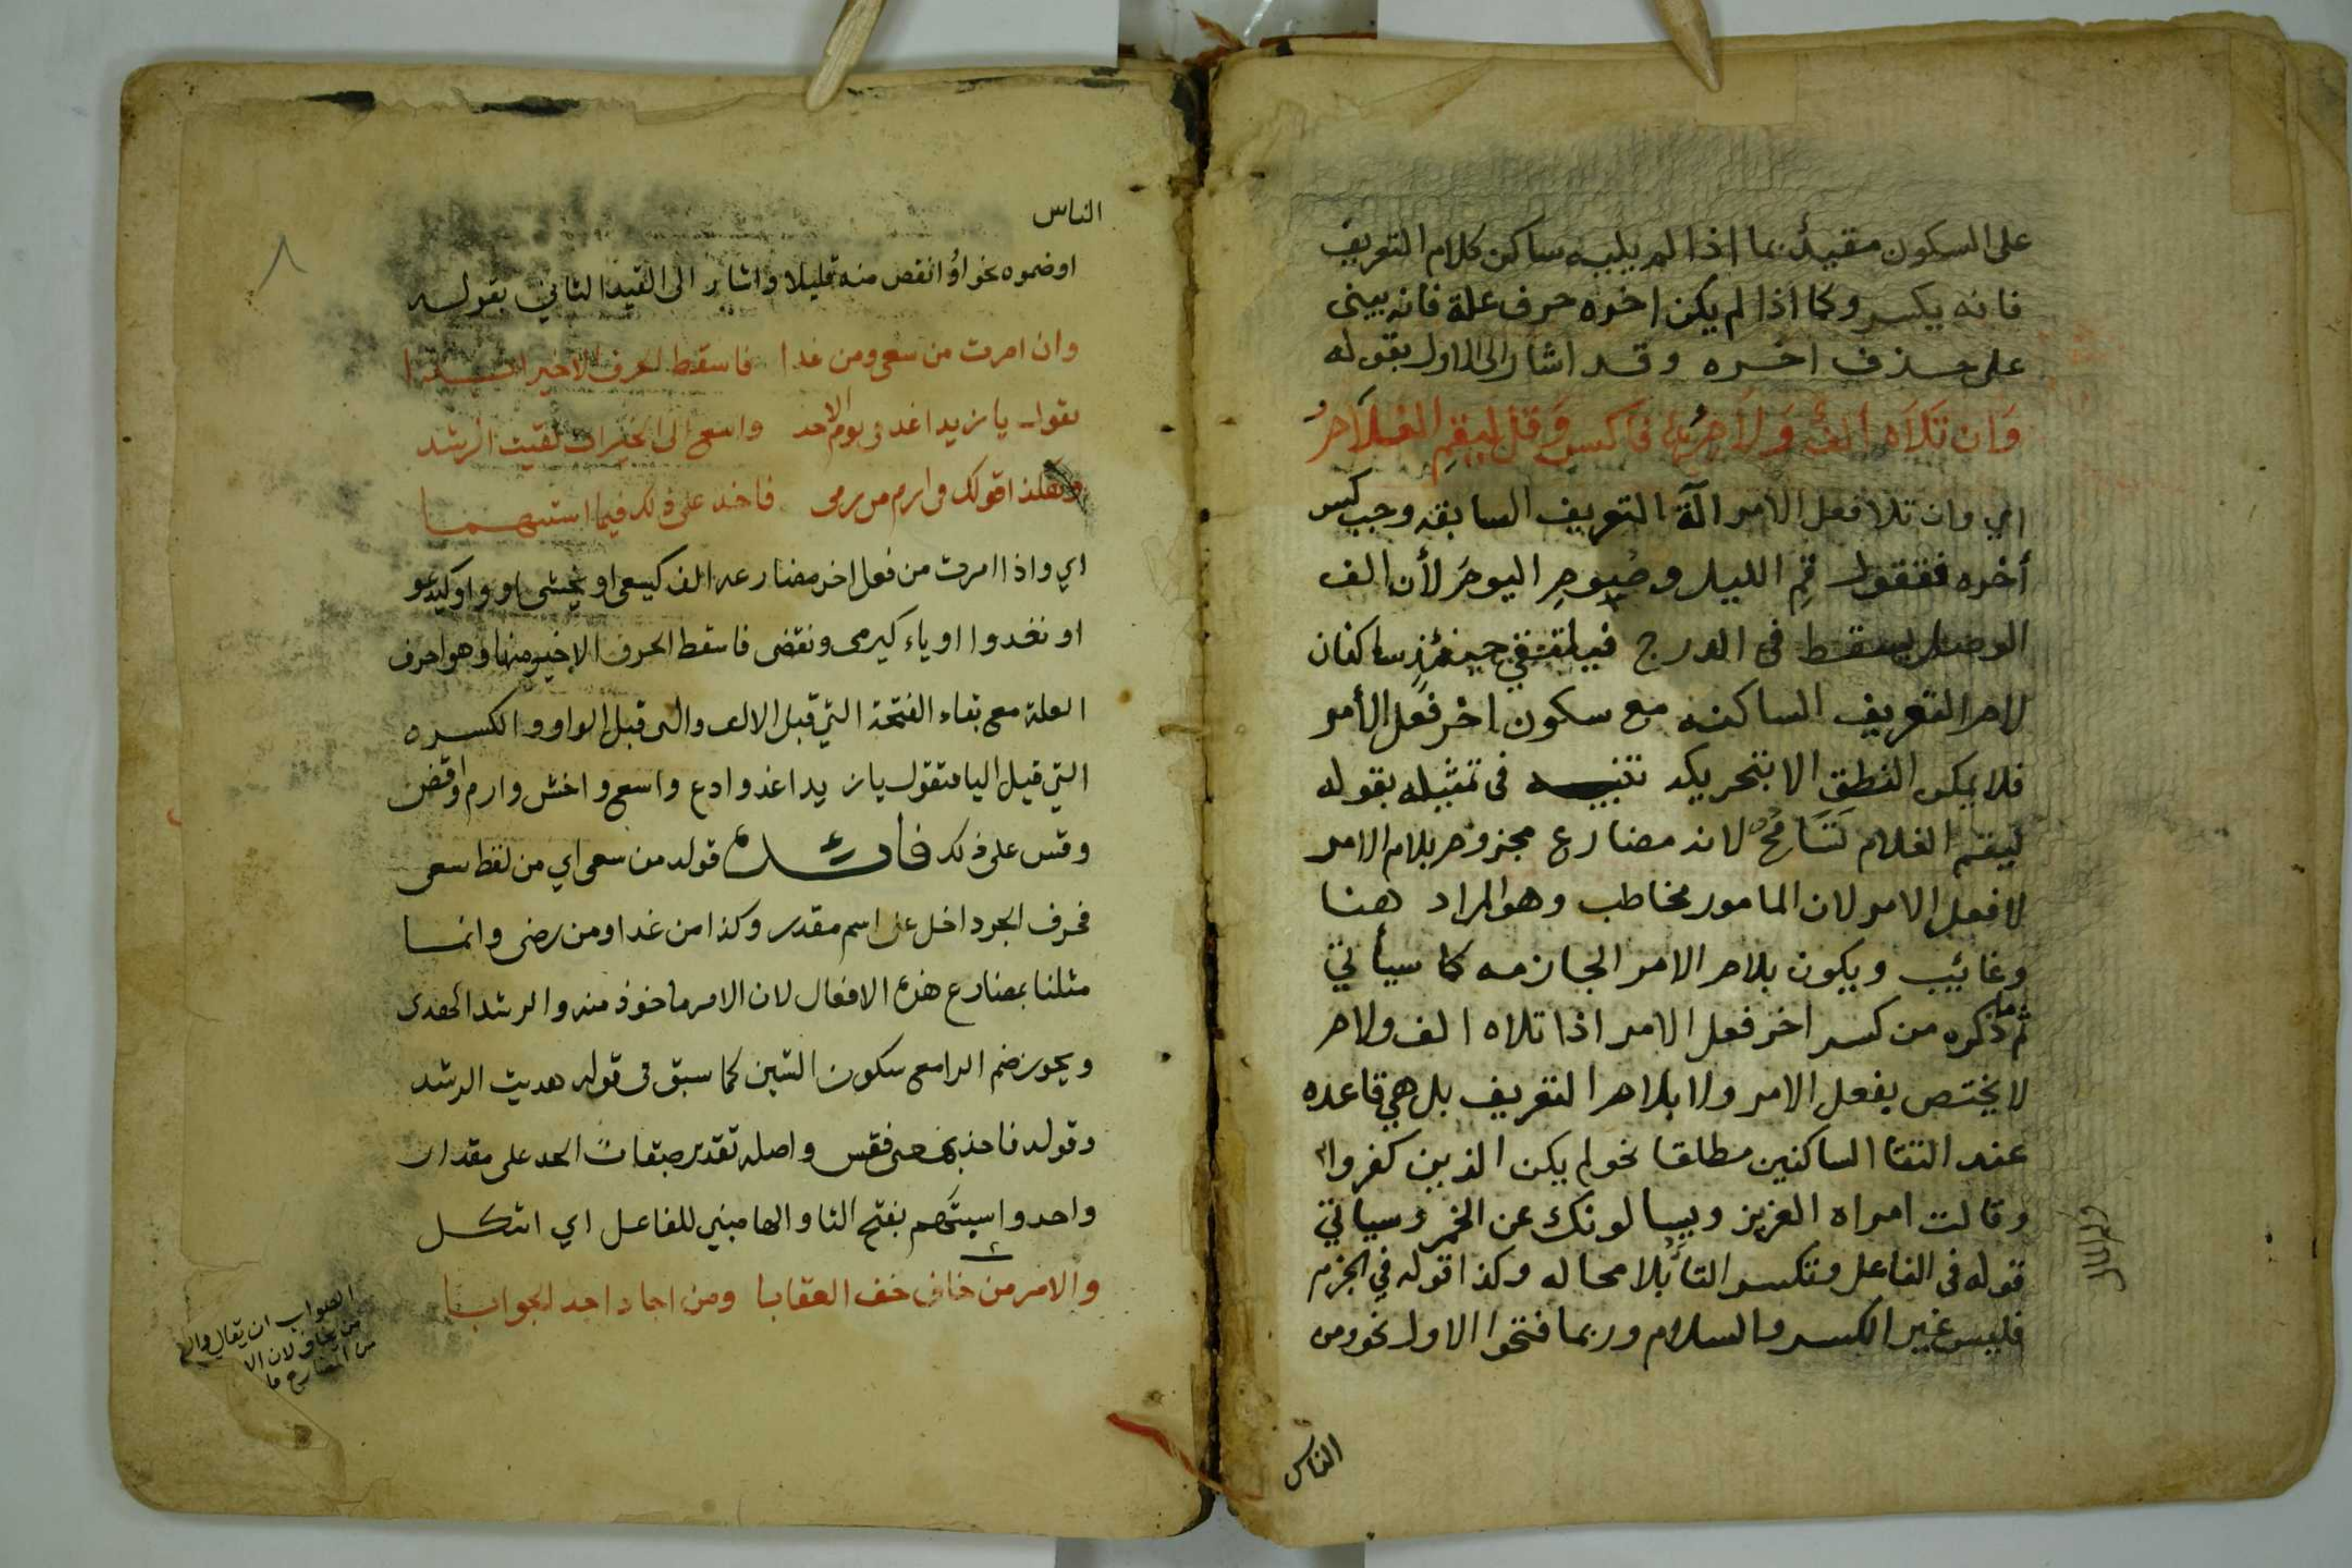 على السكون مقيد بما اذا لم يليه ساكن كلام التعريف
فانه يكسر وكما اذا لم يكن اخره حرف علة فانه يبنى
على حذف اخره وقد اشار الى الاول بقوله
وَان تلاه ألف ولام فاكسر وقل ليقم الغلام
اي وان تلا فعل الامر آلة التعريف السابقه وجب كسر
أخره فتقول قم الليل وصُوم اليوم لأن الف
الوصل يسقط في الدرج فيلتقي حينئذٍ ساكنان
لام التعريف الساكنه مع سكون اخر فعل الأمر
فلا يمكن النطق الا بتحريكه تنبيه في تمثيله بقوله
ليقم الغلام تسَامُح لانه مضارع مجزوم بلام الامر
لا فعل الامر لان المامور مخاطب وهو المراد هنا
وغائب ويكون بلام الامر الجازمه كما سيأتي
ثم ما ذكره من كسر اخر فعل الامر اذا تلاه الف ولام
لا يختص بفعل الامر ولا بلام التعريف بل هي قاعده
عند التقا الساكنين مطلقا نحو لم يكن الذين كفروا
وقالت امراه العزيز ويسالونك عن الخمر وسياتي
قوله في الفاعل وتكسر التا بلا محاله وكذا قوله في الجزم
فليس غير الكسر والسلام وربما فتحوا الاول نحو ومن
الناس
الناس
اوضموه نحو اوُ انقص منه قليلا واشار الى القيد الثاني بقوله
وان امرت من سعى ومن غدا فاسقط الحرف الاخير ابدا
تقول يا زيد اغد في يوم الاحد واسع الى الخيرات لقيت الرشد
وهكذا قولك في ارم من رمى فاحذ على ذلك فيما استبهما
اي واذا امرت من فعل اخر مضارعه الف كيسعى او يخشى او واو كيدعو
او نغدوا او ياء كيرمى ونقضى فاسقط الحرف الاخير منها وهو احرف
العلة مع بقاء الفتحة التي قبل الالف والتى قبل الواو والكسره
التي قبل اليا فتقول يا زيد اغد وادع واسع واخش وارم واقض
وقس على ذلك فائدة قوله من سعى اي من لفظ سعى
فحرف الجر داخل على اسم مقدر وكذا من غدا ومن رضى وانما
مثلنا بمضارع هذه الافعال لان الامر ماخوذ منه والرشد الهدى
ويجوز ضم الرا مع سكون الشين كما سبق في قوله هديت الرشد
وقوله فاحذ بمعنى فقس واصله تقدير الحد على مقدار
واحد واستبهم بفتح التا والها مبني للفاعل اي اشكل
والامر من خاف خف العقابا ومن اجاد اجد الجوابا
الصواب ان يقال والا
من يخاف لان الا
من المضارع ما